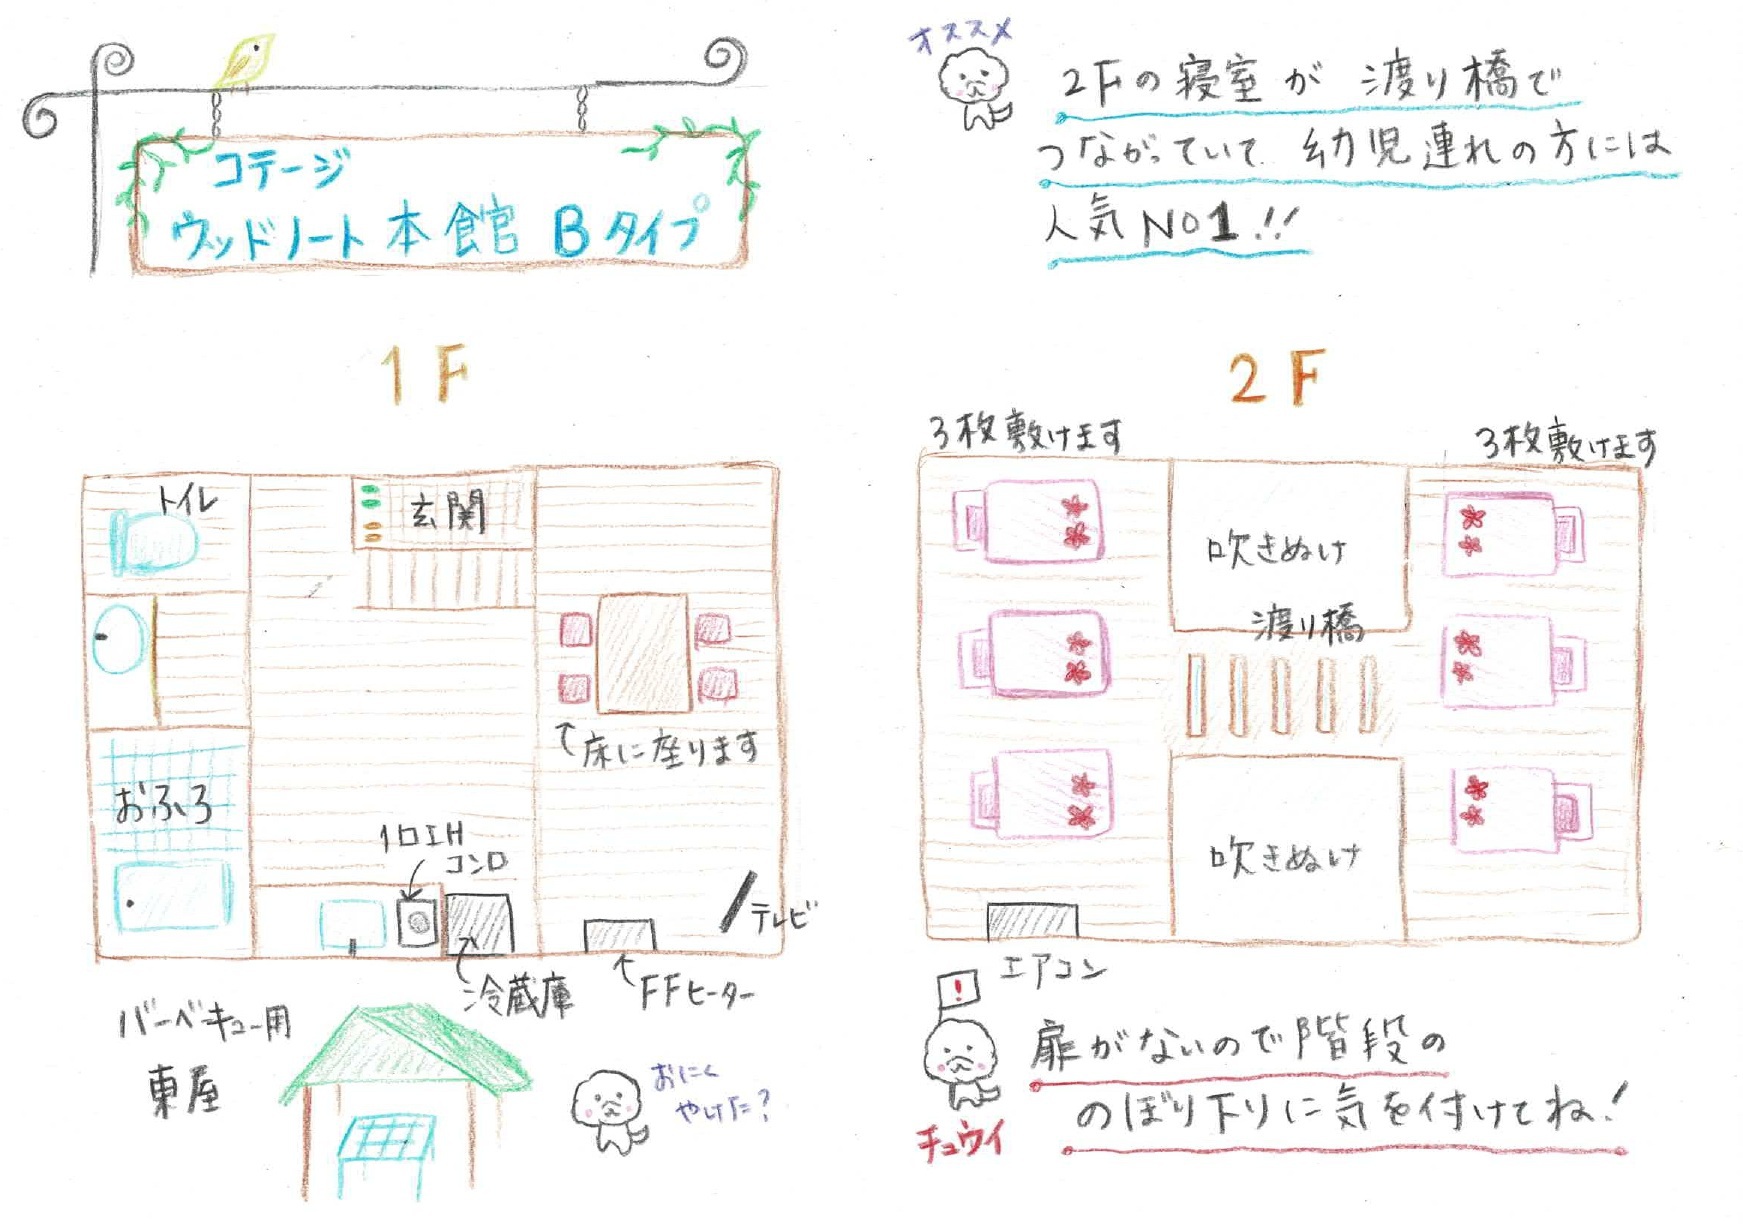 コテージ
ウッドノート本館 Bタイプ
オススメ
2Fの寝室が 渡り橋で
つながっていて 幼児連れの方には
人気No1!!
1F
トイレ
玄関
↑床に座ります
おふろ
1口IH
コンロ
テレビ
冷蔵庫
FFヒーター
バーベキュー用
東屋
おにく
やけた?
2F
3枚敷けます
3枚敷けます
吹きぬけ
渡り橋
吹きぬけ
エアコン
!
チュウイ
扉がないので階段の
のぼり下りに気を付けてね!